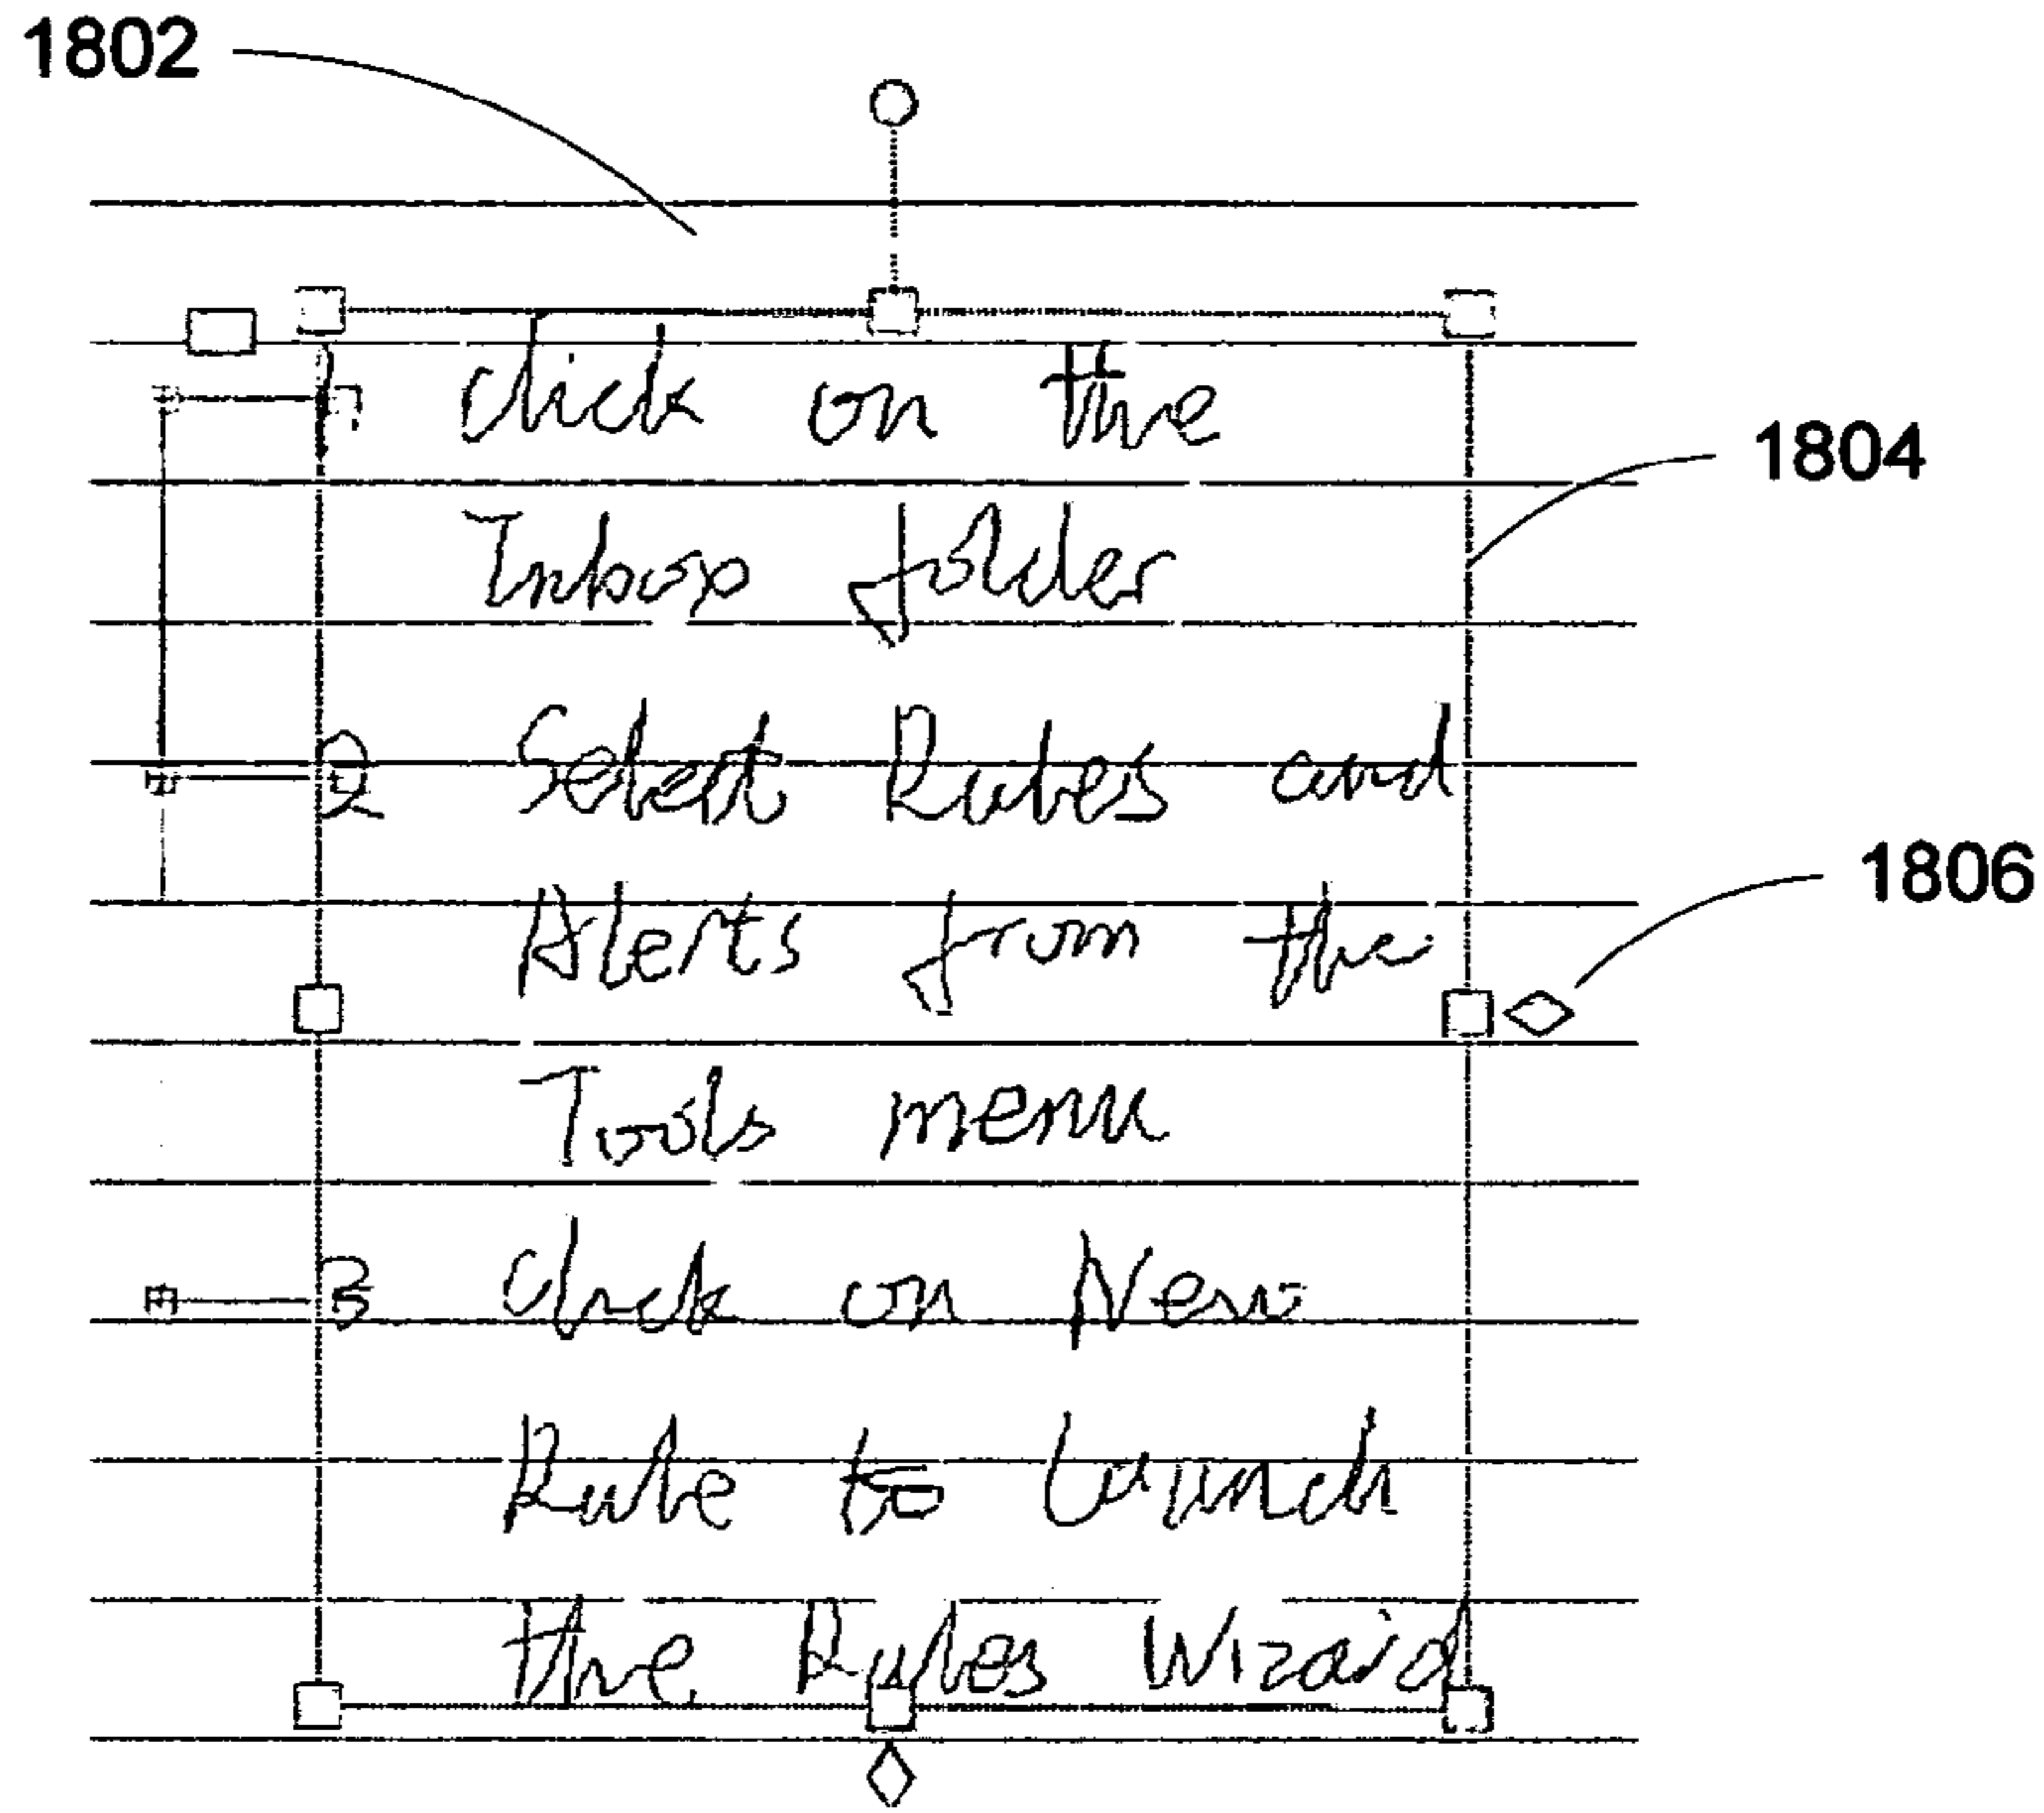 1802
1 Click on the
Inbox folder
1804
2 Select Rules and
1806
Alerts from the
Tools menu
3 Click on New
Rule to launch
the Rules Wizard